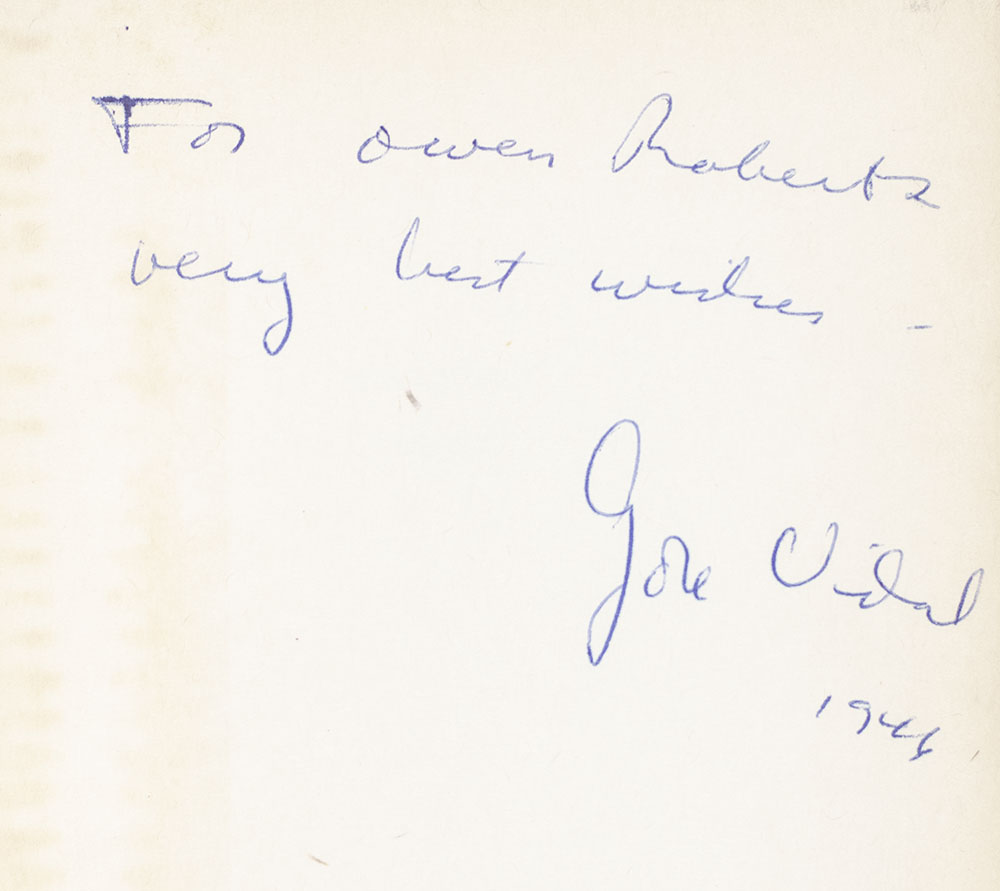 For Owen Roberts
very best wishes -
Gore Vidal
1946